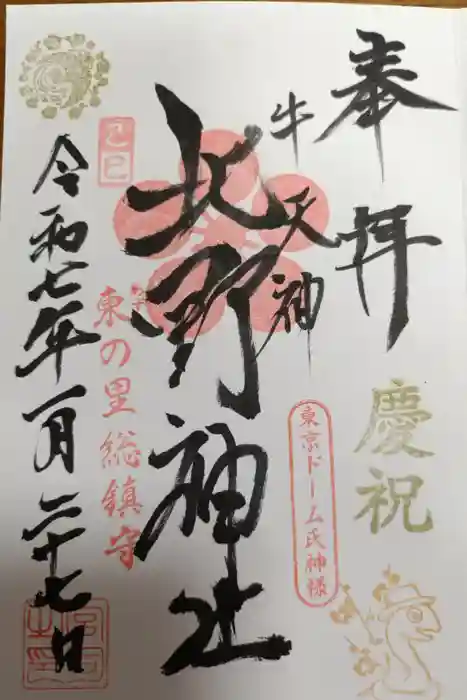 奉拝
慶祝
牛天神
東京ドーム氏神様
北野神社
東の里総鎮守
己巳
令和七年一月二十七日